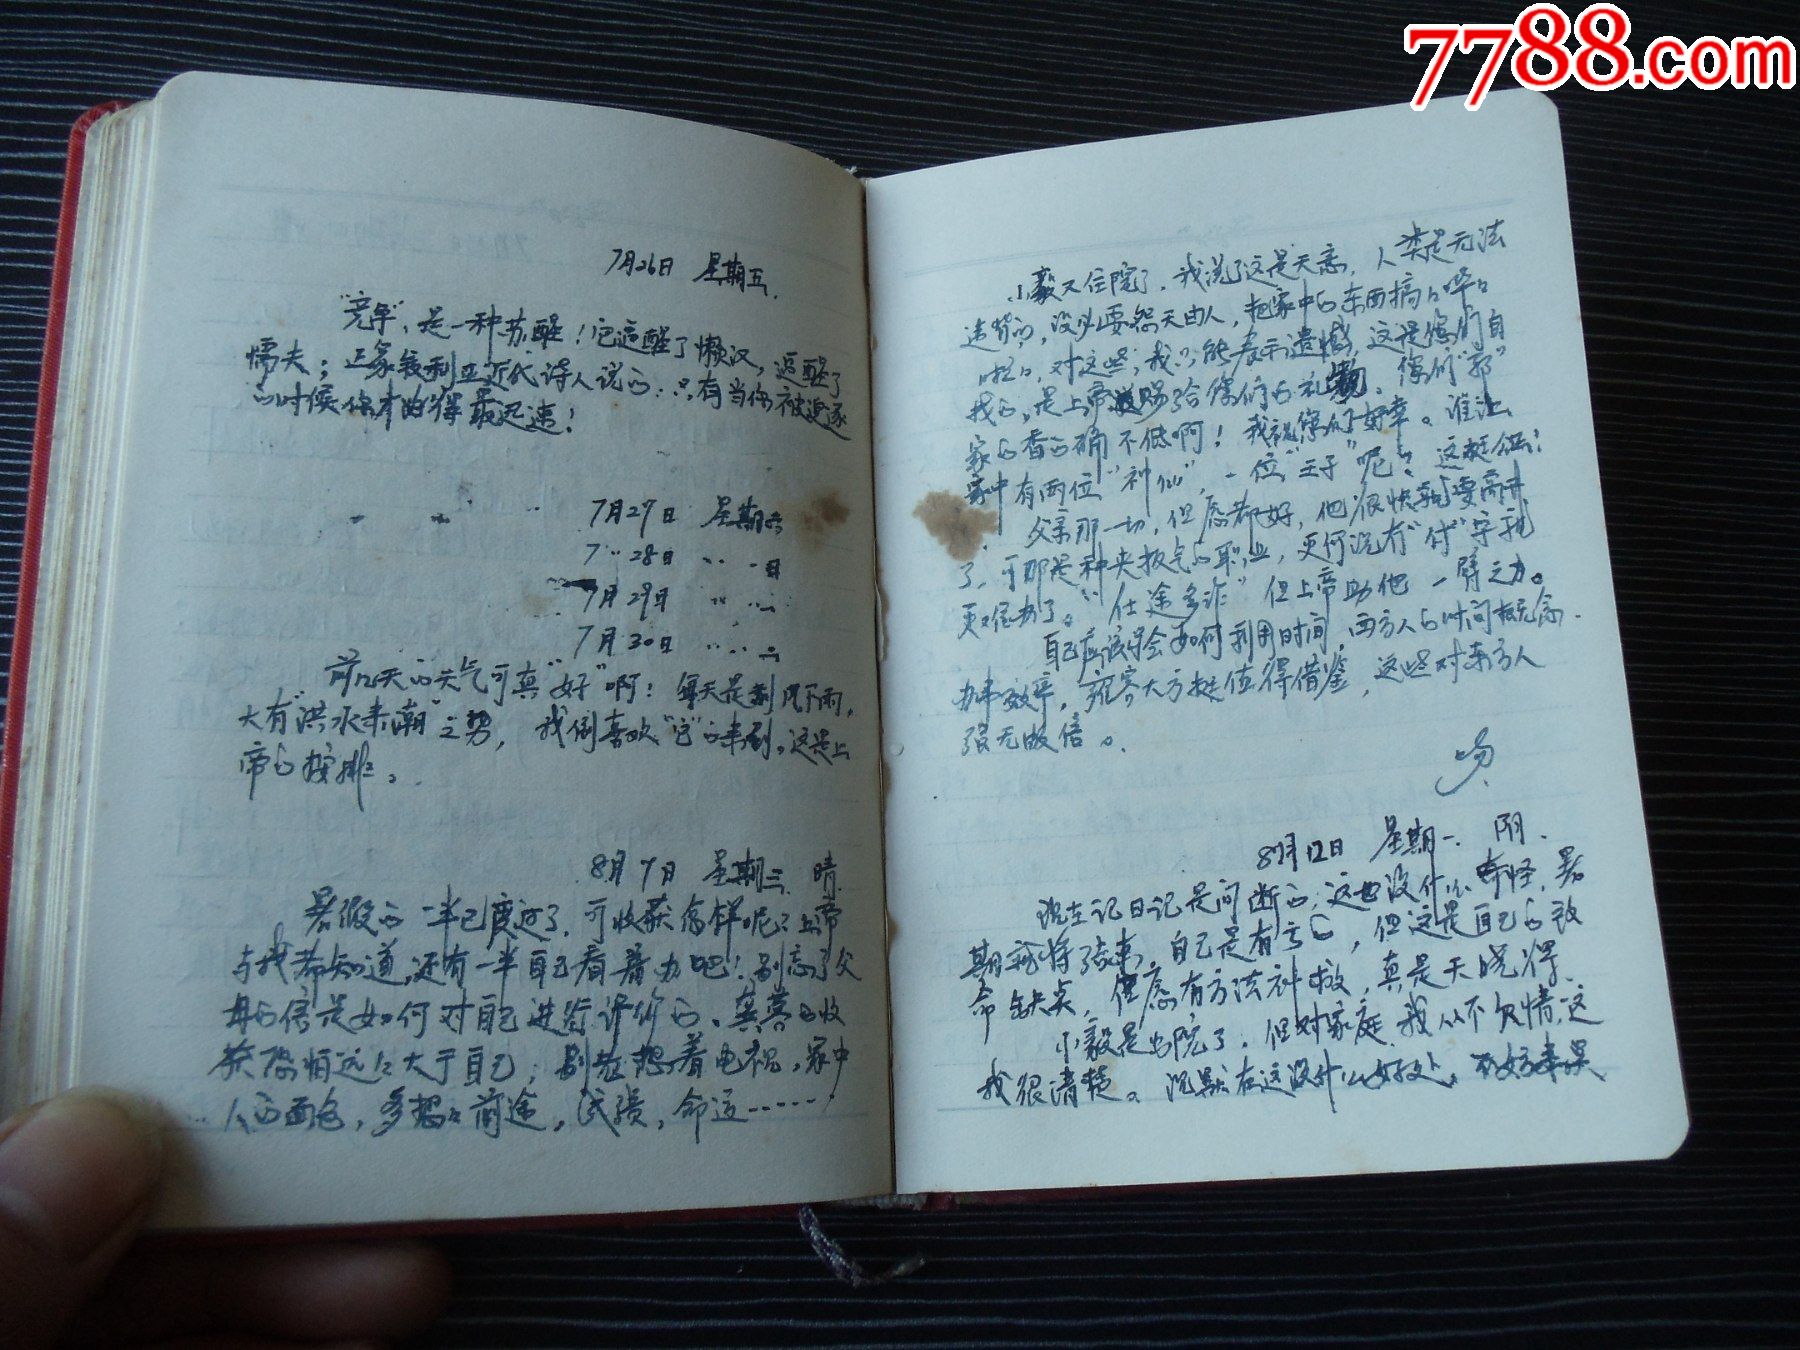 7788.com
7月26日 星期五.
"竞争",是一种苏醒!它逼醒了懒汉,逼醒了
懦夫;正象叙利亚近代诗人说的:只有当你被追逐
的时候你才跑得最迅速!
7月27日 星期六
7〃28日 〃〃日
7月29日 〃〃一
7月30日 〃〃二
前几天的天气可真"好"啊!每天是刮风下雨,
大有"洪水来潮"之势,我倒喜欢"它"的来到。这是上
帝的按排。
8月7日 星期三 晴.
暑假的一半已度过了,可收获怎样呢?上帝
与我都知道,还有一半自己看着办吧!别忘了父
母的信是如何对自己进行评价的。龚蓉的收
获恐怕远远大于自己,别老想着电视,家中
人的面包,多想想前途,试题,命运……
小毅又住院了,我说了这是天意,人类是无法
违背的,没必要怨天由人,把家中的东西搞的哗哗
啦啦,对这些,我只能表示遗憾,这是你们自
找的,是上帝赐给你们的礼物,你们"郭"
家的香的确不低啊!我祝你们好幸。谁让
家中有两位"神仙",一位"王子"呢?这挺
父亲那一切,但愿都好,他很快就要离开
了,可那是种夹板气的职业,更何况有"付"字就
更难办了。"仕途多诈"但上帝助他一臂之力。
自己应该学会如何利用时间,西方人的时间
办事效率,雍容大方挺值得借鉴,这些对东方人
很无
8月12日 星期一. 阴.
现在记日记是间断的,这也没什么奇怪,暑
期就将结束,自己是有亏的,但这是自己的致
命缺点,但愿有方法补救,真是天晓得.
小毅是出院了,但对家庭,我从不欠情,这
我很清楚。沉默在这没什么好处。